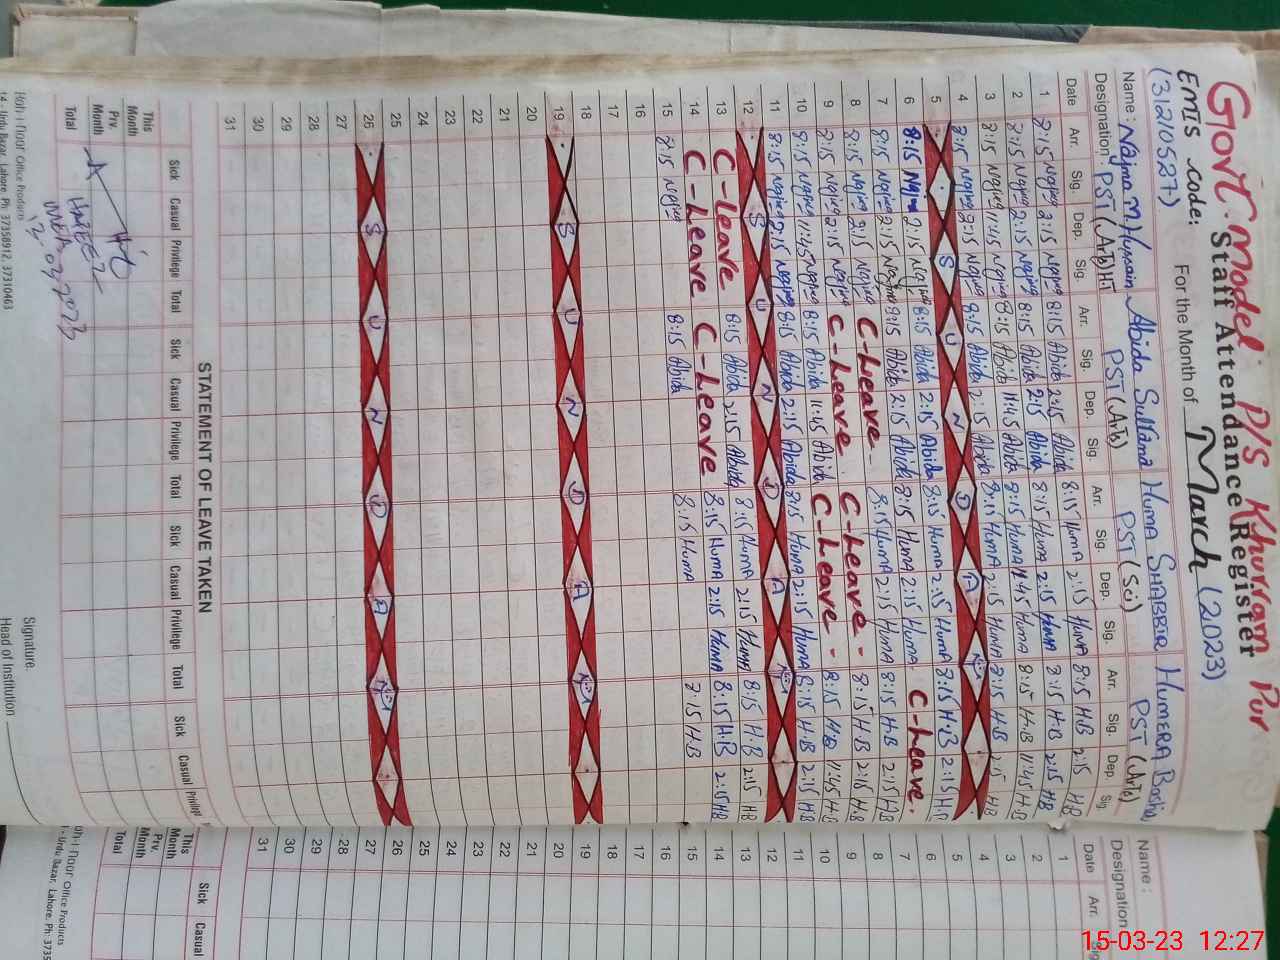 Govt. Model P/S Khurram Pur
Staff Attendance Register
EMIS code: For the Month of March (2023)
(31210527)
Name: Najma M. Hussain Abida Sultana Huma SHABBIR HUMERA Bashir
Designation: PST (Arts) H.T PST (Arts) PST (Sci) PST (Arts)
Date Arr. Sig. Dep. Sig. Arr. Sig. Dep. Sig. Arr. Sig. Dep. Sig. Arr. Sig. Dep. Sig.
1 8:15 Najma 2:15 Najma 8:15 Abida 2:15 Abida 8:15 HumA 2:15 HumA 8:15 H.B 2:15 H.B
2 8:15 Najma 2:15 Najma 8:15 Abida 2:15 Abida 8:15 HumA 2:15 HumA 8:15 H.B 2:15 H.B
3 8:15 Najma 11:45 Najma 8:15 Abida 11:45 Abida 8:15 HumA 11:45 HumA 8:15 H.B 11:45 H.B
4 8:15 Najma 2:15 Najma 8:15 Abida 2:15 Abida 8:15 HumA 2:15 HumA 8:15 H.B 2:15 H.B
5 S U N D A Y
6 8:15 Najma 2:15 Najma 8:15 Abida 2:15 Abida 8:15 HumA 2:15 HumA 8:15 H.B 2:15 H.B
7 8:15 Najma 2:15 Najma 8:15 Abida 2:15 Abida 8:15 HumA 2:15 HumA C-Leave.
8 8:15 Najma 2:15 Najma C-Leave 8:15 HumA 2:15 HumA 8:15 H.B 2:15 H.B
9 8:15 Najma 2:15 Najma C-Leave C-Leave 8:15 H.B 2:15 H.B
10 8:15 Najma 11:45 Najma 8:15 Abida 11:45 Abida C-Leave 8:15 H.B 11:45 H.B
11 8:15 Najma 2:15 Najma 8:15 Abida 2:15 Abida 8:15 HumA 2:15 HumA 8:15 H.B 2:15 H.B
12 S U N D A Y
13 C-Leave 8:15 Abida 2:15 Abida 8:15 HumA 2:15 HumA 8:15 H.B 2:15 H.B
14 C-Leave C-Leave 8:15 HumA 2:15 HumA 8:15 H.B 2:15 H.B
15 8:15 Najma 8:15 Abida 8:15 HumA 8:15 H.B
16
17
18
19 S U N D A Y
20
21
22
23
24
25
26 S U N D A Y
27
28
29
30
31
STATEMENT OF LEAVE TAKEN
Sick Casual Privilege Total Sick Casual Privilege Total Sick Casual Privilege Total Sick Casual Privilege
This Month
Prv. Month
Total
Signature.
Head of Institution
Rah-i-Noor Office Products
14 - Urdu Bazar, Lahore. Ph: 37358912, 37310463
Name :
Designation
Date Arr.
1
2
3
4
5
6
7
8
9
10
11
12
13
14
15
16
17
18
19
20
21
22
23
24
25
26
27
28
29
30
31
Sick Casual
This Month
Prv. Month
Total
15-03-23 12:27